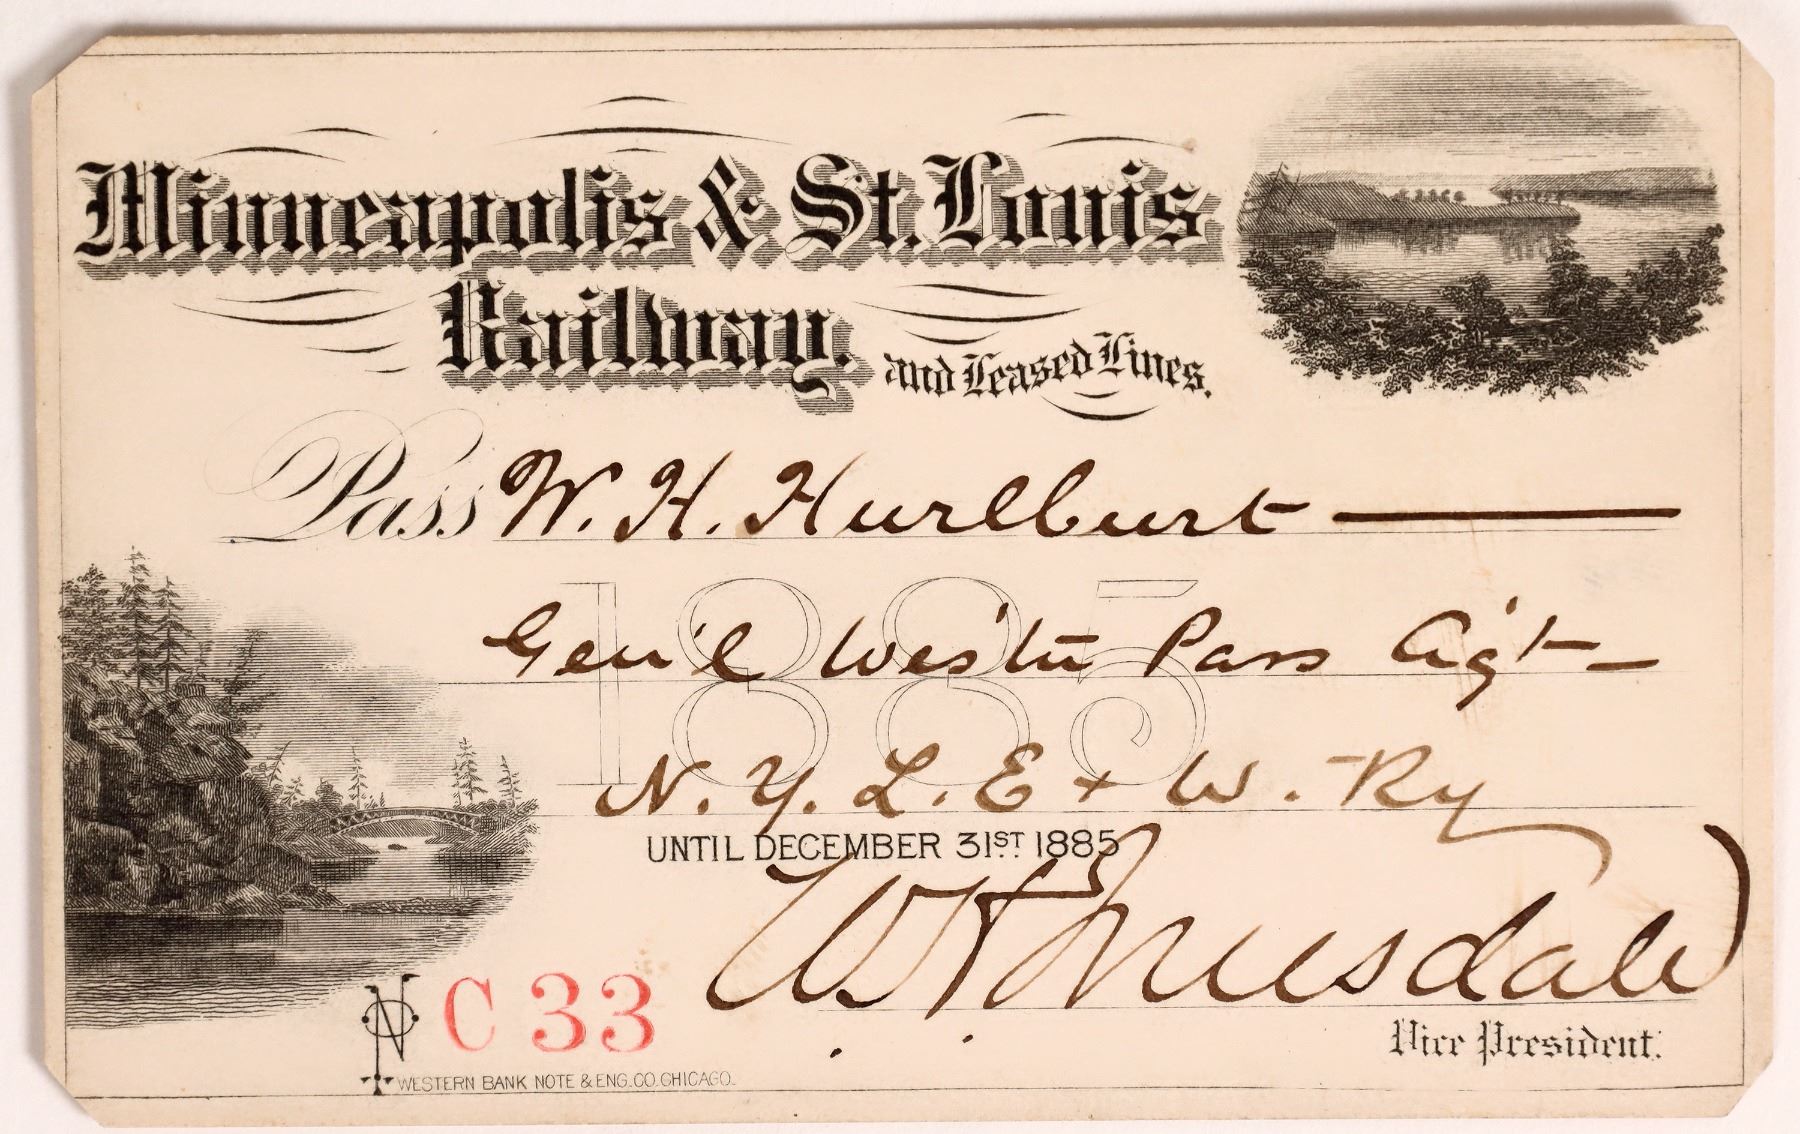 Minneapolis & St. Louis
Railway.
and Leased Lines.
Pass W. H. Hurlburt
1885
Gen'l West'n Pass Ag't
N. Y. L. E + W. Ry
UNTIL DECEMBER 31ST 1885
W. H. Truesdale
No C 33
Vice President.
WESTERN BANK NOTE & ENG. CO. CHICAGO.